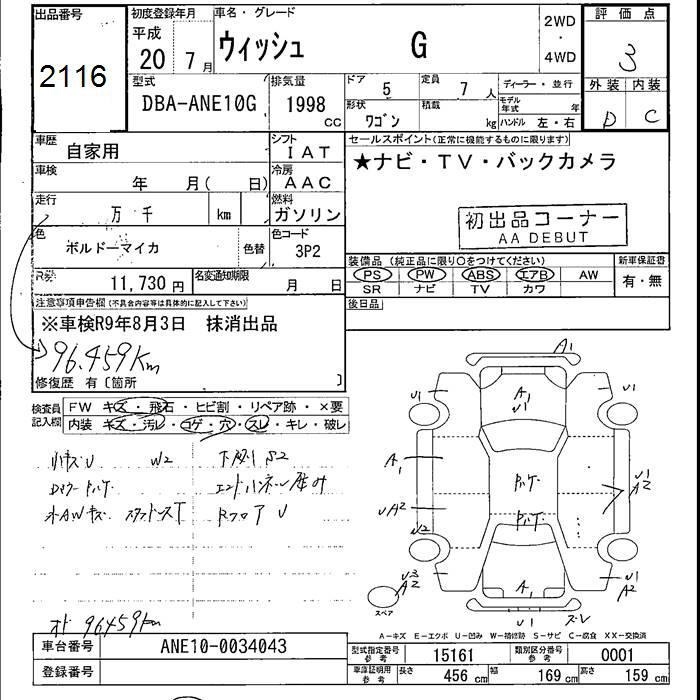 出品番号
2116
初度登録年月
平成
20 7月
車名・グレード
ウィッシュ G
2WD
・
4WD
評価点
3
外装 内装
D C
型式
DBA-ANE10G
排気量
1998 CC
ドア
5
定員
7人
形状
ワゴン
積載
kg
ディーラー・並行
モデル年式 年
ハンドル 左・右
車歴
自家用
シフト
IAT
車検
年 月( 日)
冷房
AAC
走行
万 千 km
燃料
ガソリン
色
ボルドーマイカ
色替
色コード
3P2
R券
11,730 円
名変通知期限
月 日
セールスポイント(正常に機能するものに限ります)
★ナビ・TV・バックカメラ
初出品コーナー
AA DEBUT
装備品 (純正品に限り○をつけてください)
PS PW ABS エアB AW
SR ナビ TV カワ
新車保証書
有・無
後日品
注意事項申告欄(不具合内容等は具体的に記入して下さい)
※車検R9年8月3日 抹消出品
96.459Km
修復歴 有〔箇所 〕
検査員記入欄
FW キズ・飛石・ヒビ割・リペア跡・×要
内装 キズ・汚レ・コゲ・穴・スレ・キレ・破レ
小キズU W2
下廻り S2
RフロアU
オド 96459km
A1
A1
U1
U1
U1
A1
UA2
U2
P.T.
P.T.
U1
A2
U3
A2
スペア
A1
U1
U1
A2
A－キズ E－エクボ U－凹み W－補修跡 S－サビ C－腐食 XX－交換済
車台番号
ANE10-0034043
登録番号
型式指定番号
参考
15161
類別区分番号
参考
0001
車庫証明用
参考
長さ
456 cm
幅
169 cm
高さ
159 cm